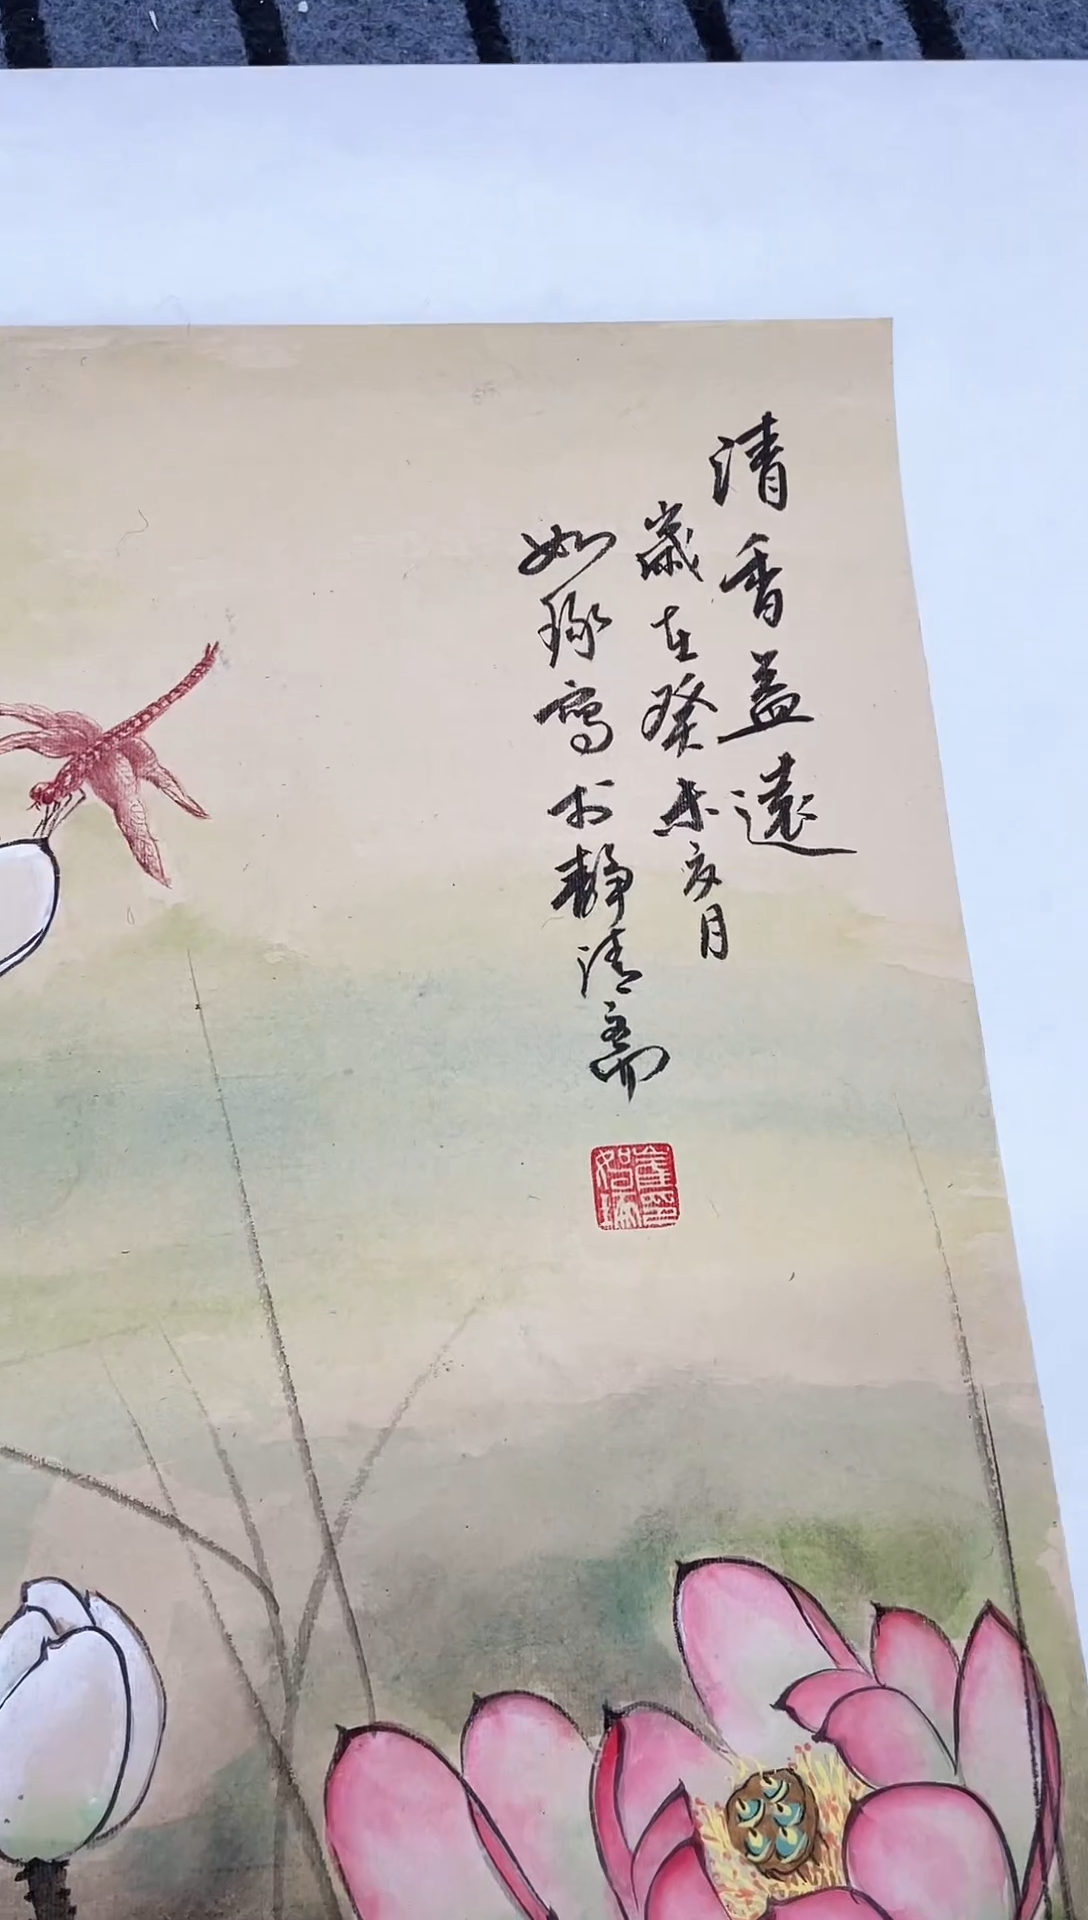 清香益遠
歲在癸未亥月
如琢寫於靜清齋